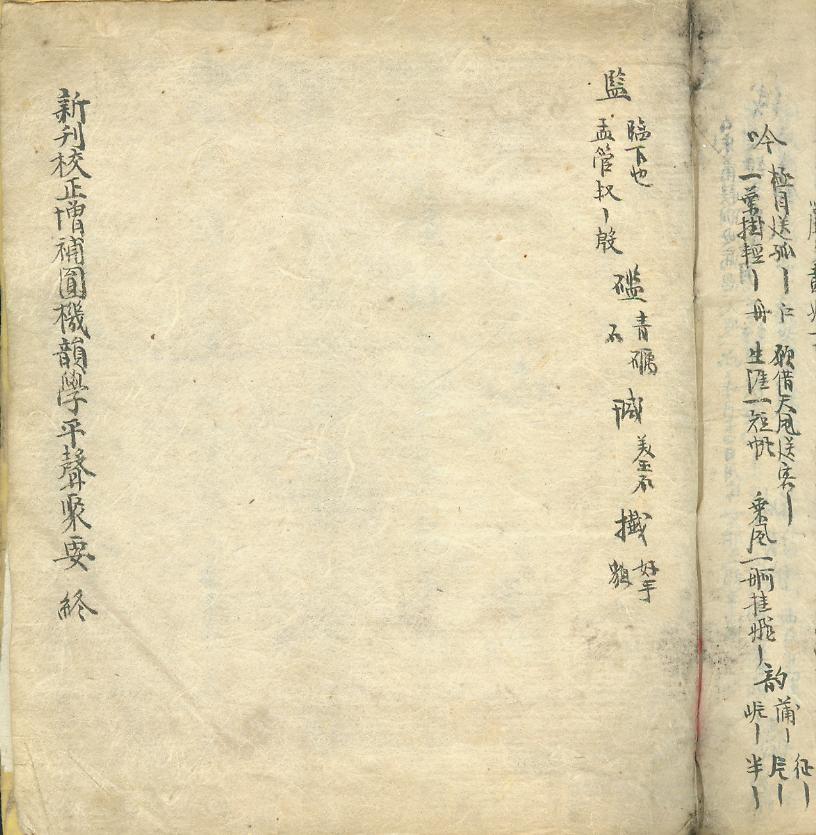 吟 極目送孤丨 願借天風送客丨
一葉掛輕丨 舟 生涯一短帆 乘風一舸挂飛丨
韵 蒲丨 征丨
片丨 半丨
監 臨下也
孟管叔丨殷
礛 青礪
石
瑊 美玉石
摻 好手
貌
新刊校正增補圓機韻學平聲聚要 終